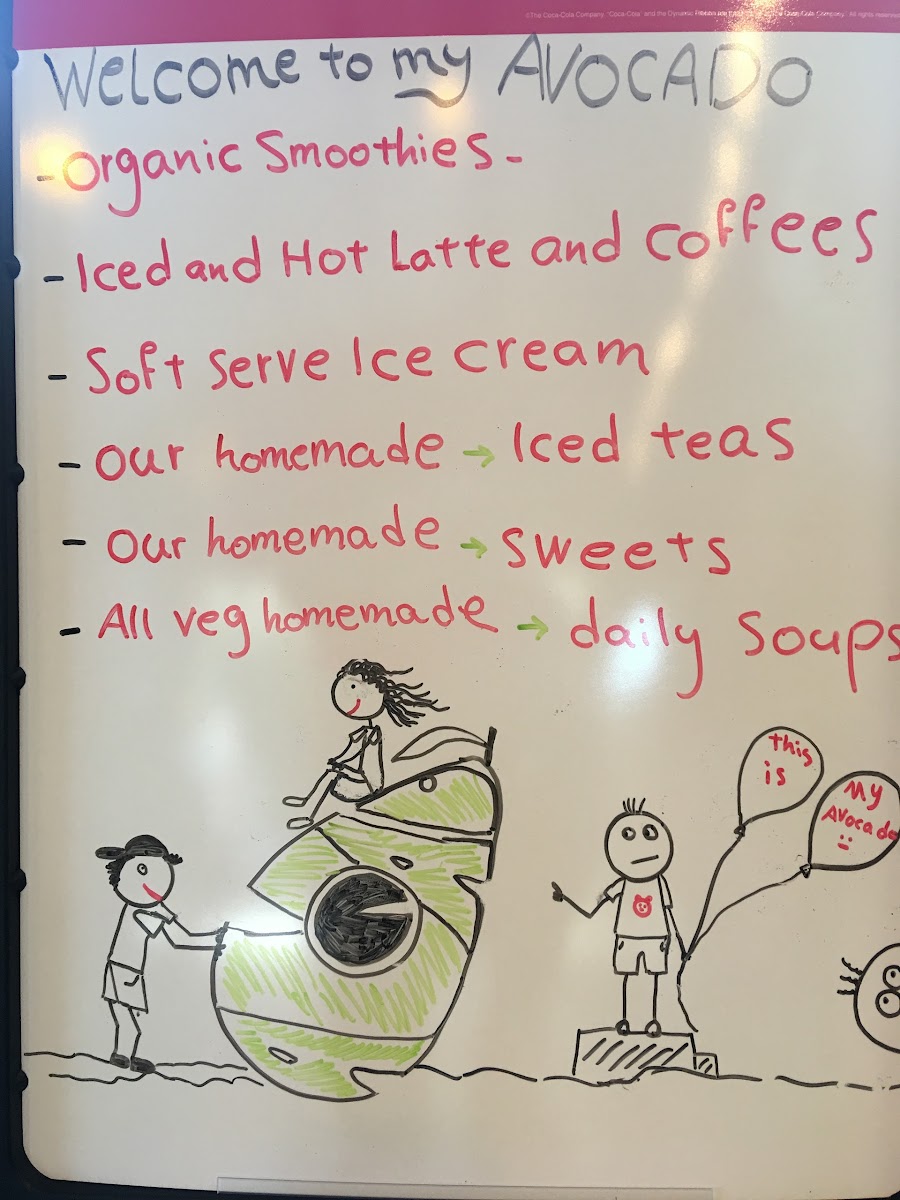 ©The Coca-Cola Company. "Coca-Cola" and the Dynamic Ribbon are The Coca-Cola Company. All rights reserved
Welcome to my AVOCADO
-Organic Smoothies-
- Iced and Hot Latte and coffees
- Soft serve Ice cream
- Our homemade → Iced teas
- Our homemade → sweets
- All veg homemade → daily soups
this
is
My
Avocado